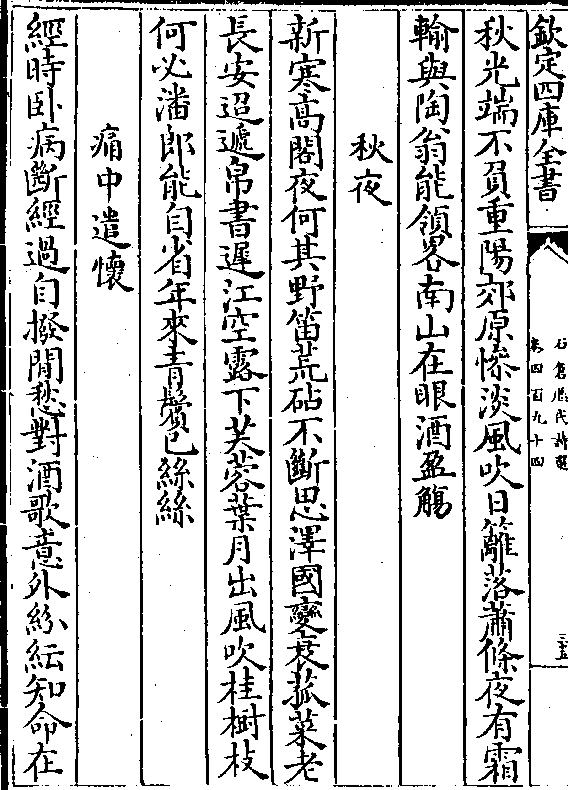 欽定四庫全書
石倉歷代詩選
卷四百九十四
三五
秋光端不負重陽郊原慘淡風吹日籬落蕭條夜有霜
輸與陶翁能領畧南山在眼酒盈觴
秋夜
新寒高閣夜何其野笛荒砧不斷思澤國變衰菰菜老
長安迢遞帛書遲江空露下芙蓉葉月出風吹桂樹枝
何必潘郎能自省年來青鬢已絲絲
痛中遣懷
經時卧病斷經過自撥閒愁對酒歌意外紛紜知命在